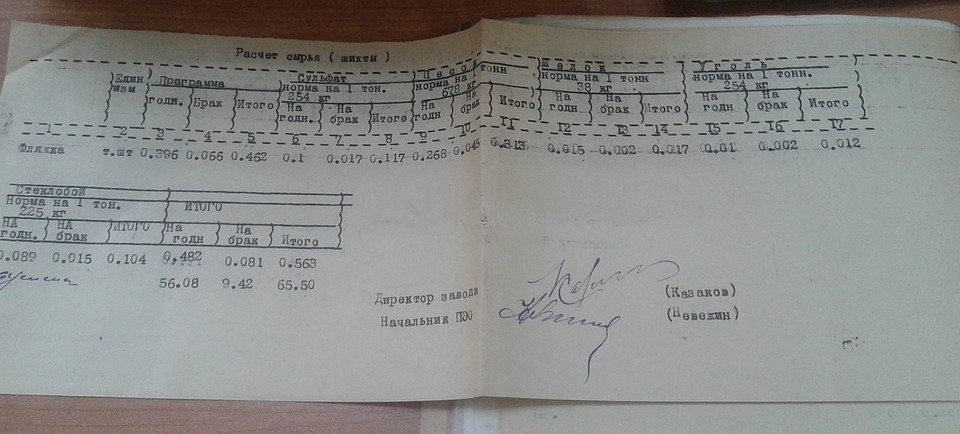 Расчет сырья ( шихты )
Един изм Программа Сульфат Песо тонн Щелок Уголь
норма на 1 тон. норма на 1 норма на 1 тонн норма на 1 тонн.
254 кг 678 кг 38 кг 254 кг
годн. Брак Итого На годн. На брак Итого На годн На брак Итого На годн На брак Итого На годн На брак Итого
1 2 3 4 5 6 7 8 9 10 11 12 13 14 15 16 17
Фляжка т.шт 0.396 0.066 0.462 0.1 0.017 0.117 0.268 0.045 0.313 0.015 0.002 0.017 0.01 0.002 0.012
Стеклобой
Норма на 1 тон. ИТОГО
225 кг
НА годн. НА брак ИТОГО На годн На брак Итого
0.089 0.015 0.104 0,482 0.081 0.563
56.08 9.42 65.50
Директор завода (Казаков)
Начальник ПЭО (Невежин)